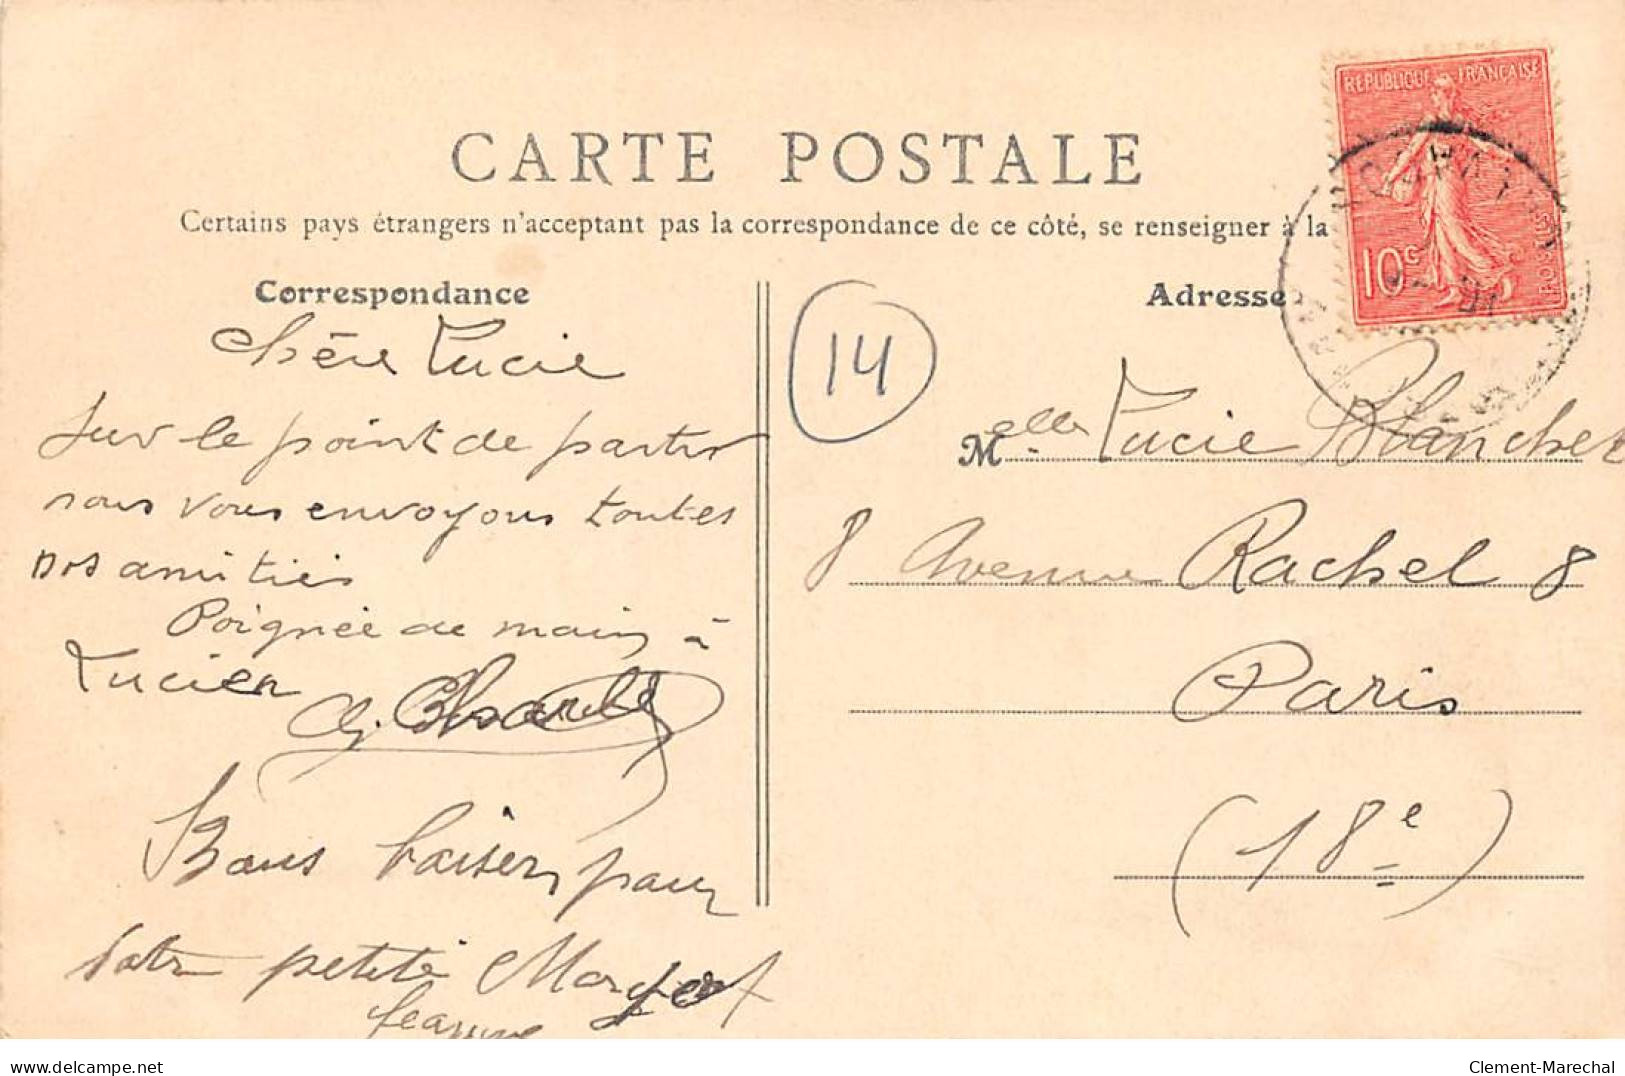 CARTE POSTALE
Certains pays étrangers n'acceptant pas la correspondance de ce côté, se renseigner à la
Correspondance
chère Lucie
Sur le point de partir
nous vous envoyons toutes
nos amitiés
Poignée de main à
Lucien
Bons baisers pour
votre petite
14
Adresse
REPUBLIQUE FRANÇAISE
10c
POSTES
Melle Lucie Blanchet
8 Avenue Rachel 8
Paris
(18e)
www.delcampe.net
Clement-Marechal